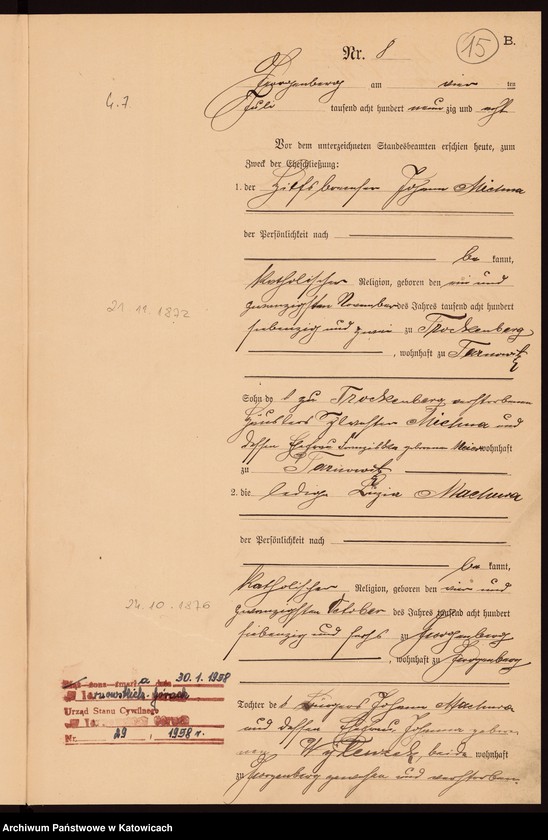 15 B.
Nr. 8
Georgenberg am vier ten
4.7
Juli tausend acht hundert neun zig und acht
Vor dem unterzeichneten Standesbeamten erschien heute, zum
Zweck der Eheschließung:
1. der Hilfsbremser Johann Miema
der Persönlichkeit nach
be kannt,
katholischer Religion, geboren den ein und
21 11. 1872
zwanzigsten November des Jahres tausend acht hundert
siebenzig und zwei zu Trockenberg
, wohnhaft zu Tarnowitz
Sohn de s zu Trockenberg verstorbenen
Häuslers Sylvester und
dessen Ehefrau Franziska geborene wohnhaft
zu Tarnowitz
2. die ledige Luzia Machura
der Persönlichkeit nach
be kannt,
katholischer Religion, geboren den vier und
24.10.1876
zwanzigsten October des Jahres tausend acht hundert
siebenzig und sechs zu Georgenberg
, wohnhaft zu Georgenberg
zmarł a dnia 30.1.1958
w Tarnowskich Górach
Urząd Stanu Cywilnego
Nr. 29 / 1958 r.
Tochter de s Bürgers Johann Machura
und dessen Ehefrau Johanna gebore
nen beide wohnhaft
zu Georgenberg gewesen und verstorben.
Archiwum Państwowe w Katowicach